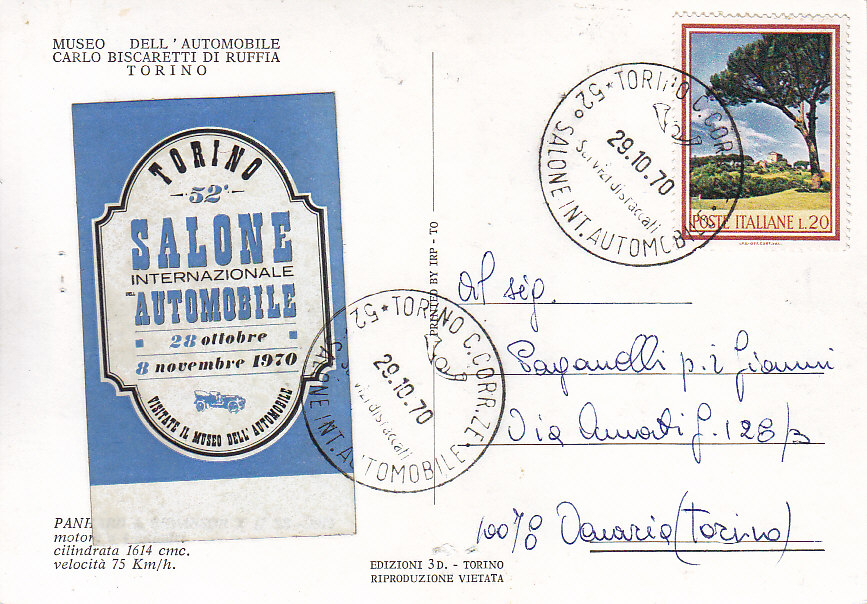 MUSEO DELL'AUTOMOBILE
CARLO BISCARETTI DI RUFFIA
TORINO
TORINO
52°
SALONE
INTERNAZIONALE
DELL'
AUTOMOBILE
28 ottobre
8 novembre 1970
VISITATE IL MUSEO DELL'AUTOMOBILE
PANH
motor
cilindrata 1614 cmc.
velocità 75 Km/h.
PRINTED BY IRP - TO
EDIZIONI 3 D. - TORINO
RIPRODUZIONE VIETATA
TORINO C.CORR.ZE
52° SALONE INT. AUTOMOBILE
29.10.70
Servizi distaccati
POSTE ITALIANE L.20
TORINO C.CORR.ZE
52° SALONE INT. AUTOMOBILE
29.10.70
vizi distaccati
Al sig.
Paganelli p.i Gianni
Via Amati G. 128/3
10078 Venaria (Torino)